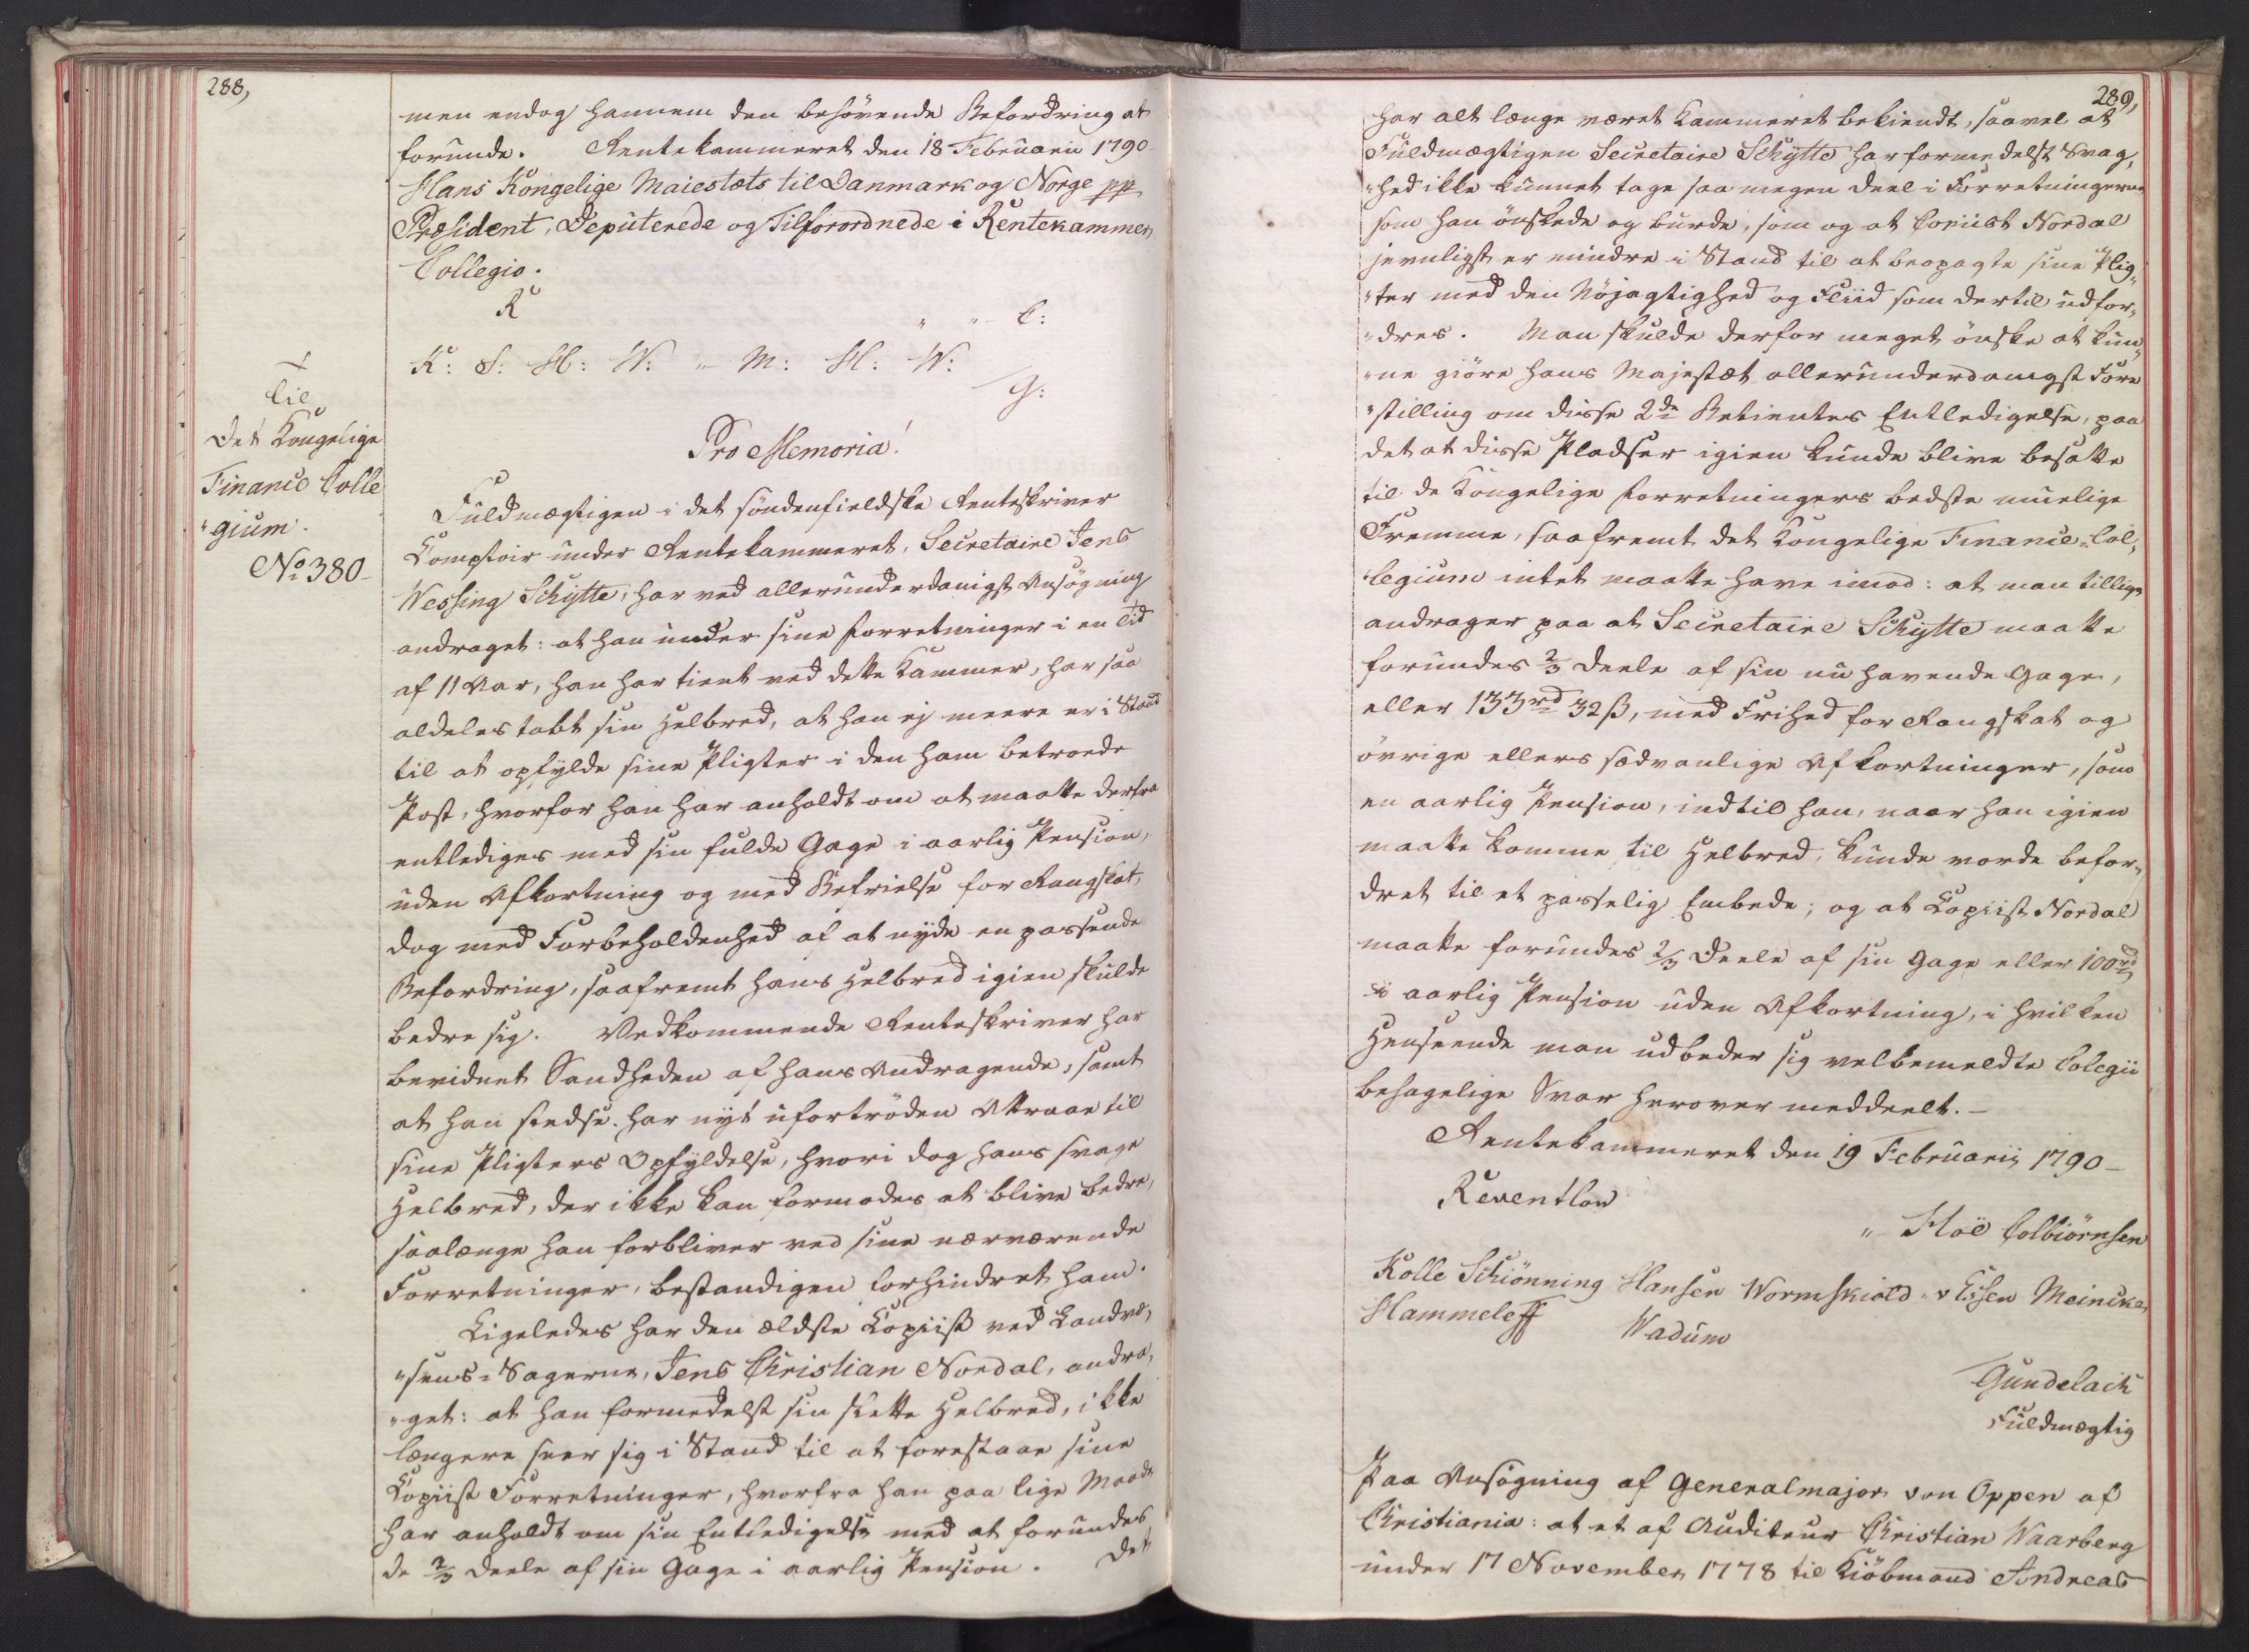 288,
men endog hannem den behövende Befordring at
forunde. Rentekammeret den 18 Februarii 1790.
Hans Kongelige Maiestæts til Danmark og Norge pp
Præsident, Deputerede og Tilforordnede i Rentekammer
Collegio.
R
" " C:
K: S: H: W: " M: H: W:
G:
Til
Det Kongelige
Finance Colle
"gium.
No 380
Pro Memoria!
Fuldmægtigen i det söndenfieldske Renteskriver
Comptoir under Rentekammeret, Secretaire Jens
Wessing Schytte, har ved allerunderdanigst Ansögning
andraget: at han under sine Forretninger i en Tid
af 11 Aar, han har tient ved dette Kammer, har saa
aldeles tabt sin Helbred, at han ej meere er i Stand
til at opfylde sine Pligter i den ham betroede
Post, hvorfor han har anholdt om at maatte derfra
entlediges med sin fulde Gage i aarlig Pension,
uden Afkortning og med Befrielse for Rangskat,
dog med Forbeholdenhed af at nyde en passende
Befordring, saafremt hans Helbred igien skulde
bedre sig. Vedkommende Renteskriver har
bevidnet Sandheden af hans Andragende, samt
at han stedse har nyt ufortröden Attraae til
sine Pligters Opfyldelse, hvori dog hans svage
Helbred, der ikke kan formodes at blive bedre,
saalænge han forbliver ved sine nærværende
Forretninger, bestandigen forhindret ham.
Ligeledes har den ældste Copiist ved Landvæ,
"sens-Sagerne, Jens Christian Nordal, andra,
"get: at han formedelst sin slette Helbred, ikke
længere seer sig i Stand til at forestaae sine
Copiist Forretninger, hvorfra han paa lige Maade
har anholdt om sin Entledigelse med at forundes
de 2/3 Deele af sin Gage i aarlig Pension. Det
289,
har alt længe været Kammeret bekiendt, saavel at
Fuldmægtigen Secretaire Schytte har formedelst Svag,
"hed ikke kunnet tage saa megen Deel i Forretningerne
som han önskede og burde, som og at Copiist Nordal
jevnligst er mindre i Stand til at beopagte sine Plig,
"ter med den Nöjagtighed og Fliid som dertil udfor,
"dres. Man skulde derfor meget önske at kun,
"ne giöre Hans Majestæt allerunderdanigst Fore
"stilling om disse 2de Betientes Entledigelse, paa
det at disse Pladser igien kunde blive besatte
til de Kongelige Forretningers bedste muelige
Fremme, saafremt det Kongelige Finance-Col,
"legium intet maatte have imod: at man tillige
andrager paa at Secretaire Schytte maatte
forundes 2/3 Deele af sin nu havende Gage,
eller 133rd 32ß, med Frihed for Rangskat og
övrige ellers sædvanlige Afkortninger, som
en aarlig Pension, indtil han, naar han igien
maatte komme til Helbred, kunde vorde befor,
dret til et passelig Embede; og at Copiist Nordal
maatte forundes 2/3 Deele af sin Gage eller 100rd
i aarlig Pension uden Afkortning, i hvilken
Henseende man udbeder sig velbemeldte Colegii
behagelige Svar herover meddeelt.
Rentekammeret den 19 Februarii 1790
Reventlow
" Hoë Colbiörnsen
Kolle Schiönning Hansen Wormskiold v Essen Meincke
Hammeleff Wadum
Gundelach
Fuldmægtig
Paa Ansögning af Generalmajor von Oppen af
Christiania: at et af Auditeur Christian Waarberg
under 17 November 1778 til Kiöbmand Andreas